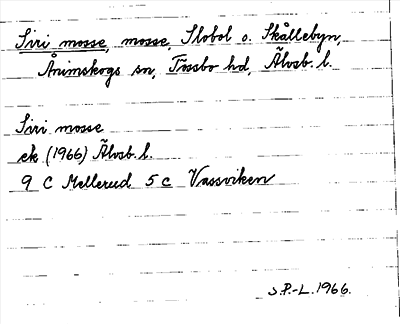 Siri mosse, mosse, Slobol o. Skållebyn,
Ånimskogs sn, Tössbo hd, Älvsb. l.
Siri mosse
ek (1966) Älvsb. l.
9 C Mellerud 5 c Vassviken
S.P.-L. 1966.